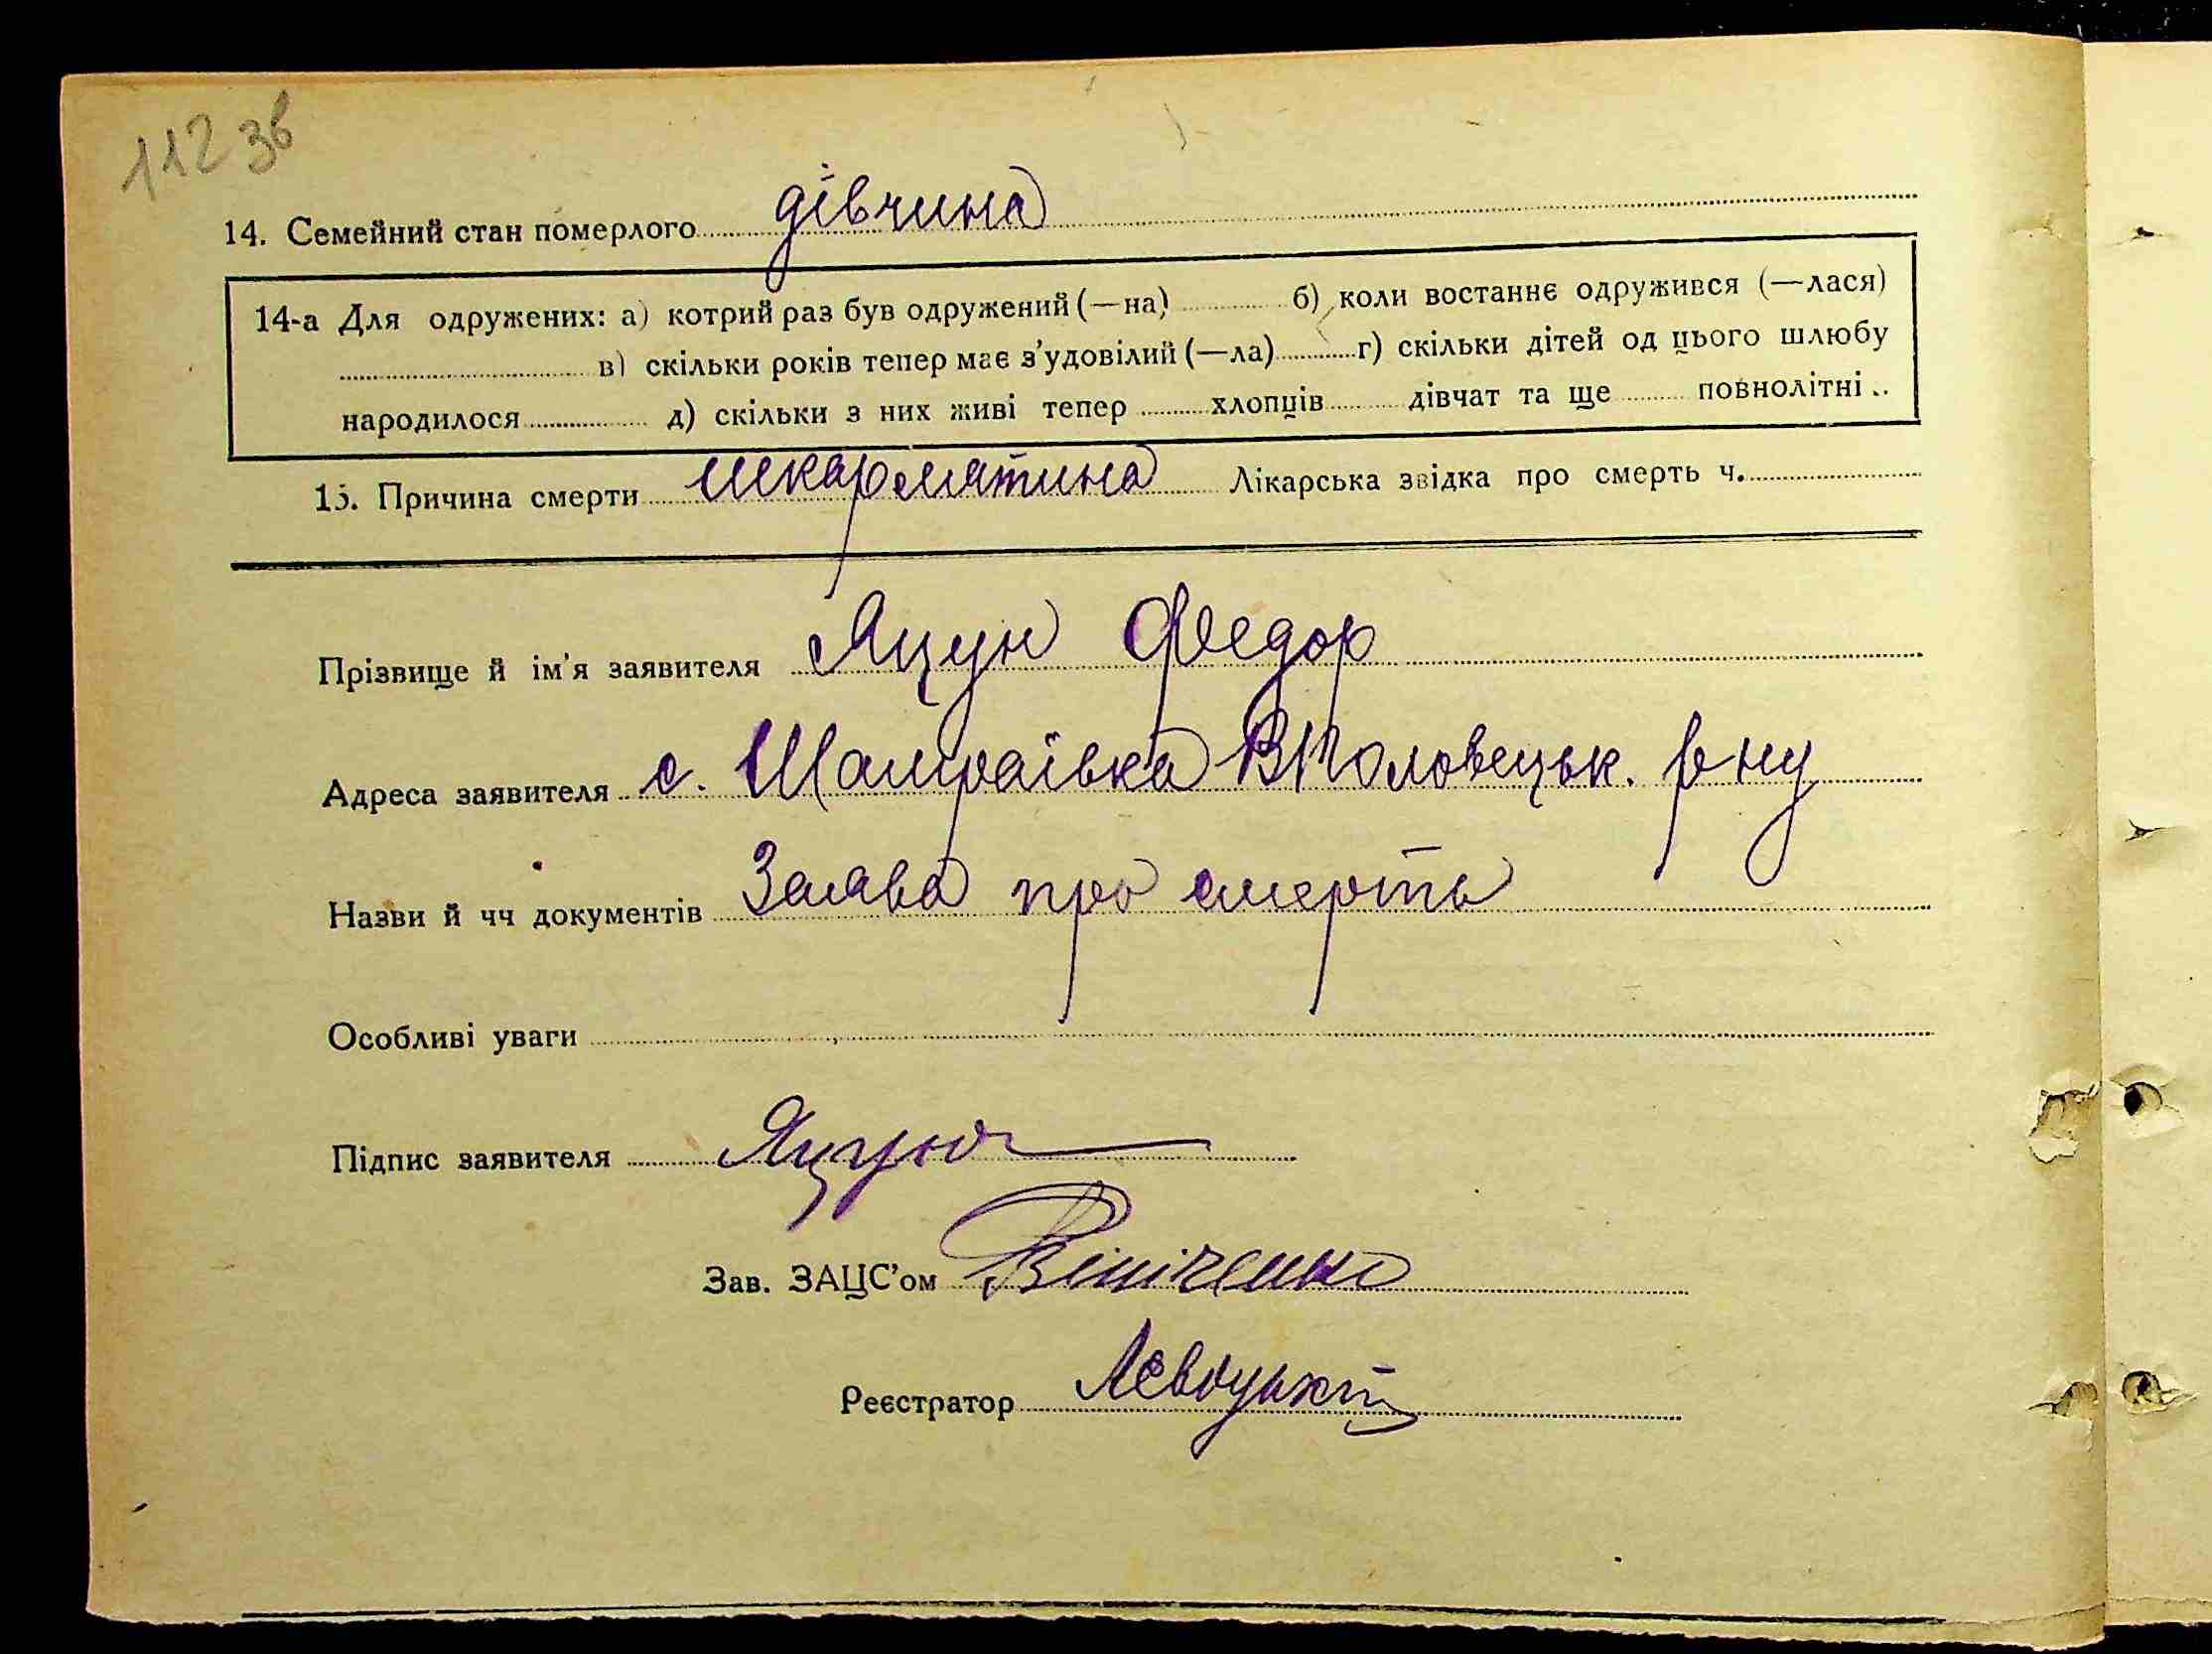 112 зв
14. Семейний стан померлого дівчина
14-а Для одружених: а) котрий раз був одружений (—на) б) коли востаннє одружився (—лася)
в) скільки років тепер має з'удовілий (—ла) г) скільки дітей од цього шлюбу
народилося д) скільки з них живі тепер хлопців дівчат та ще повнолітні
15. Причина смерти шкарлятина Лікарська звідка про смерть ч.
Прізвище й ім'я заявителя Яцун Федор
Адреса заявителя с. Шамраївка ВПоловецьк. р ну
Назви й чч документів Заява про смерть
Особливі уваги
Підпис заявителя Яцун
Зав. ЗАЦС'ом Вініченко
Реєстратор